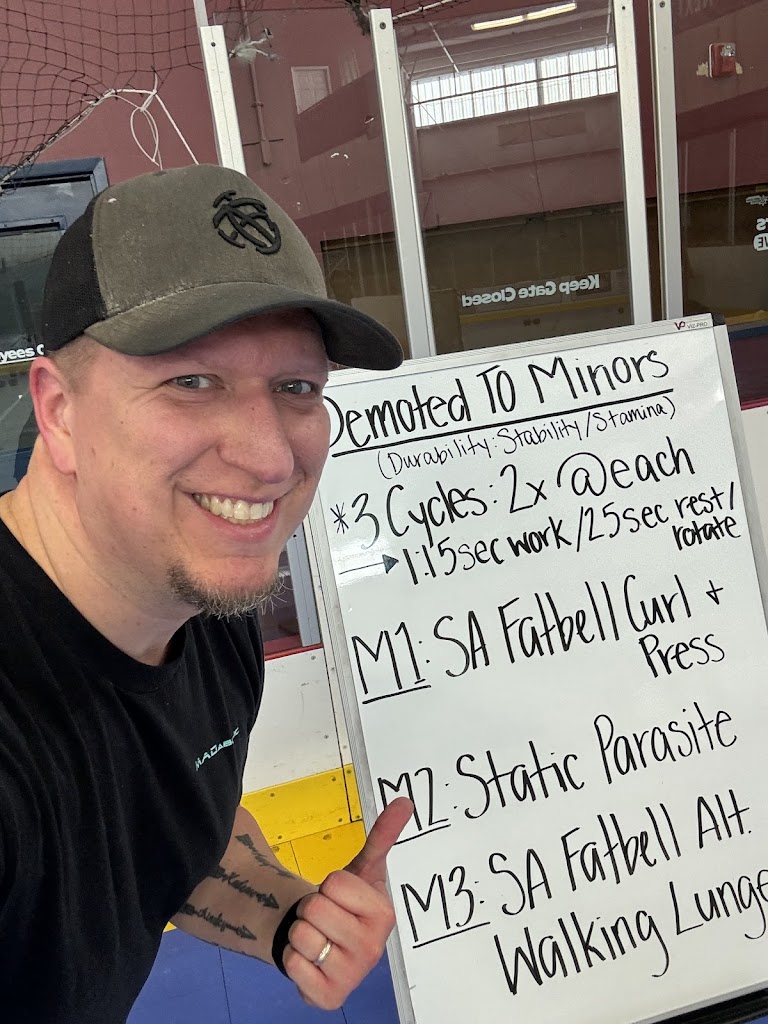 Keep Gate Closed
yees
VIZ-PRO
Demoted To Minors
(Durability: Stability/Stamina)
*3 Cycles: 2x @each
1:15sec work/25sec rest/
rotate
M1: SA Fatbell Curl +
Press
M2: Static Parasite
M3: SA Fatbell Alt.
Walking Lunge